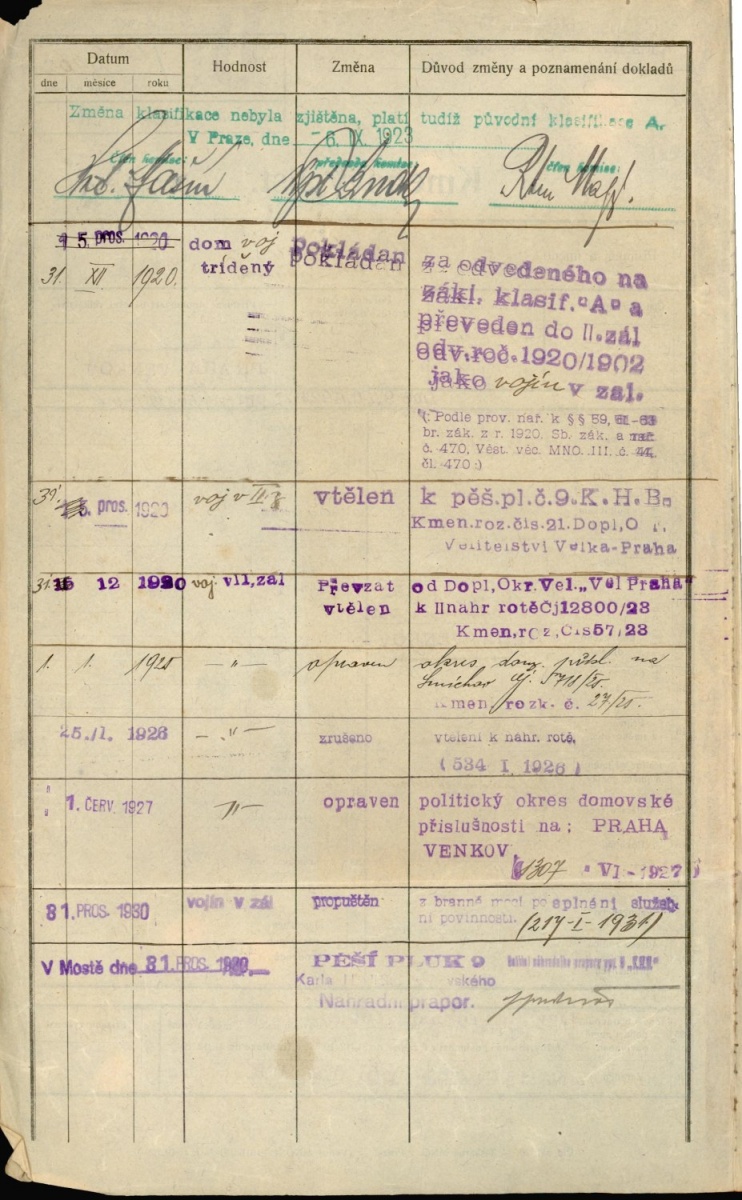 Datum Hodnost Změna Důvod změny a poznamenání dokladů
dne měsíce roku
Změna klasifikace nebyla zjištěna, platí tudíž původní klasifikace A.
V Praze, dne -6. IX. 1923
člen komise: předseda komise: člen komise:
15. pros. 1920 dom voj pokládan
31. XII. 1920. tříděný pokládan za odvedeného na
zákl. klasif. "A" a
převeden do II. zál
odv. roč. 1920/1902
jako vojín v zal.
(: Podle prov. nař. k §§ 59, 61-63
br. zák. z r. 1920, Sb. zák. a nař.
č. 470, Věst. věc. MNO. III. č. 44,
čl. 470 :)
31. pros. 1920 voj v III. z vtělen k pěš. pl. č. 9. K. H. B.
Kmen. roz. čís. 21. Dopl, O
Velitelství Velká-Praha
31. 12 1920 voj v II, zál Převzat od Dopl, Okr. Vel. „Vel Praha"
vtělen k II nahr rotě Čj 12800/23
Kmen, roz, Čís 57/23
1. 1. 1925 — " — opraven okres dom. přísl. na
Smíchov čj. 5718/25.
Kmen. rozk. č. 27/25.
25. /I. 1926 — " — zrušeno vtělení k náhr. rotě.
(534 I. 1926)
1. ČERV. 1927 — " — opraven politický okres domovské
příslušnosti na: PRAHA
VENKOV,
1307 VI - 1927
31. PROS. 1930 vojín v zál propuštěn z branné moci po splnění služeb
ní povinnosti. (217-I-1931)
V Mostě dne 31. PROS. 1930 PĚŠÍ PLUK 9
Karla H vského
Náhradní prapor.